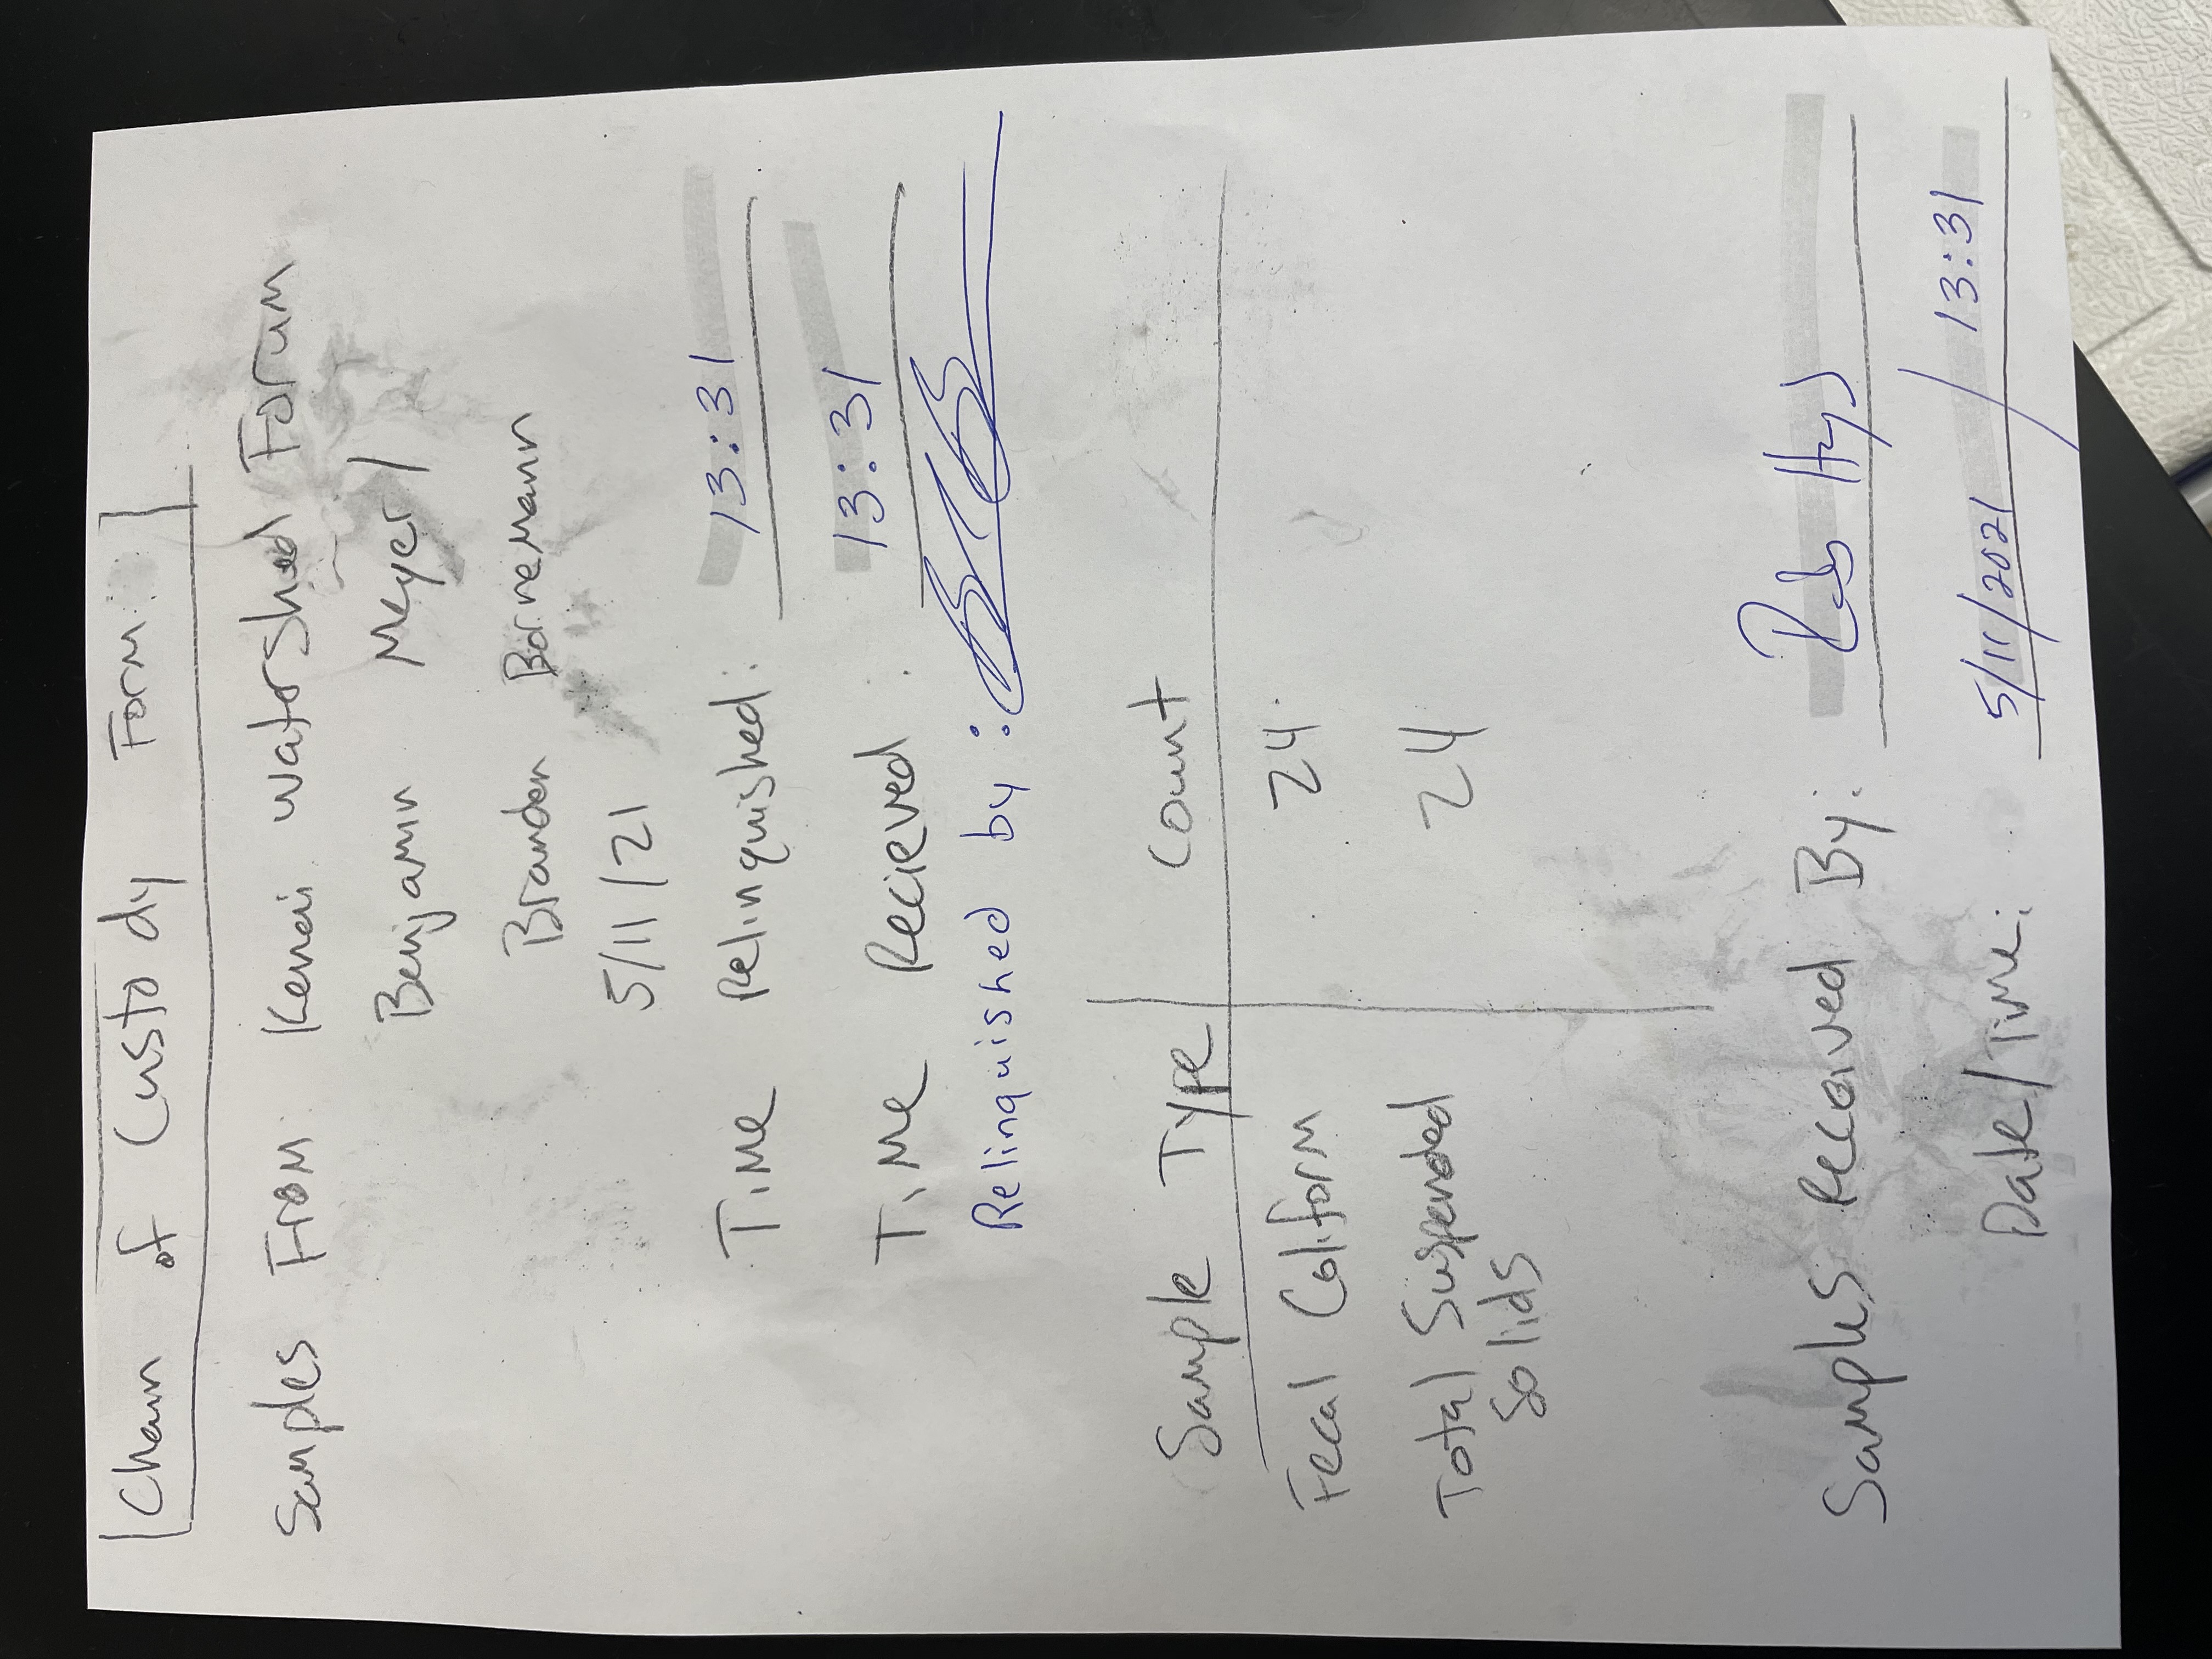 Chain of Custody Form:
Samples From: Kenai Watershed Forum
Benjamin Meyer /
Branden Bornemann
5/11/21
Time Relinquished: 13:31
Time Recieved: 13:31
Relinquished by:
Sample Type Count
Fecal Coliform 24
Total Suspended 24
Solids
Samples Received By:
Date/Time: 5/11/2021 / 13:31